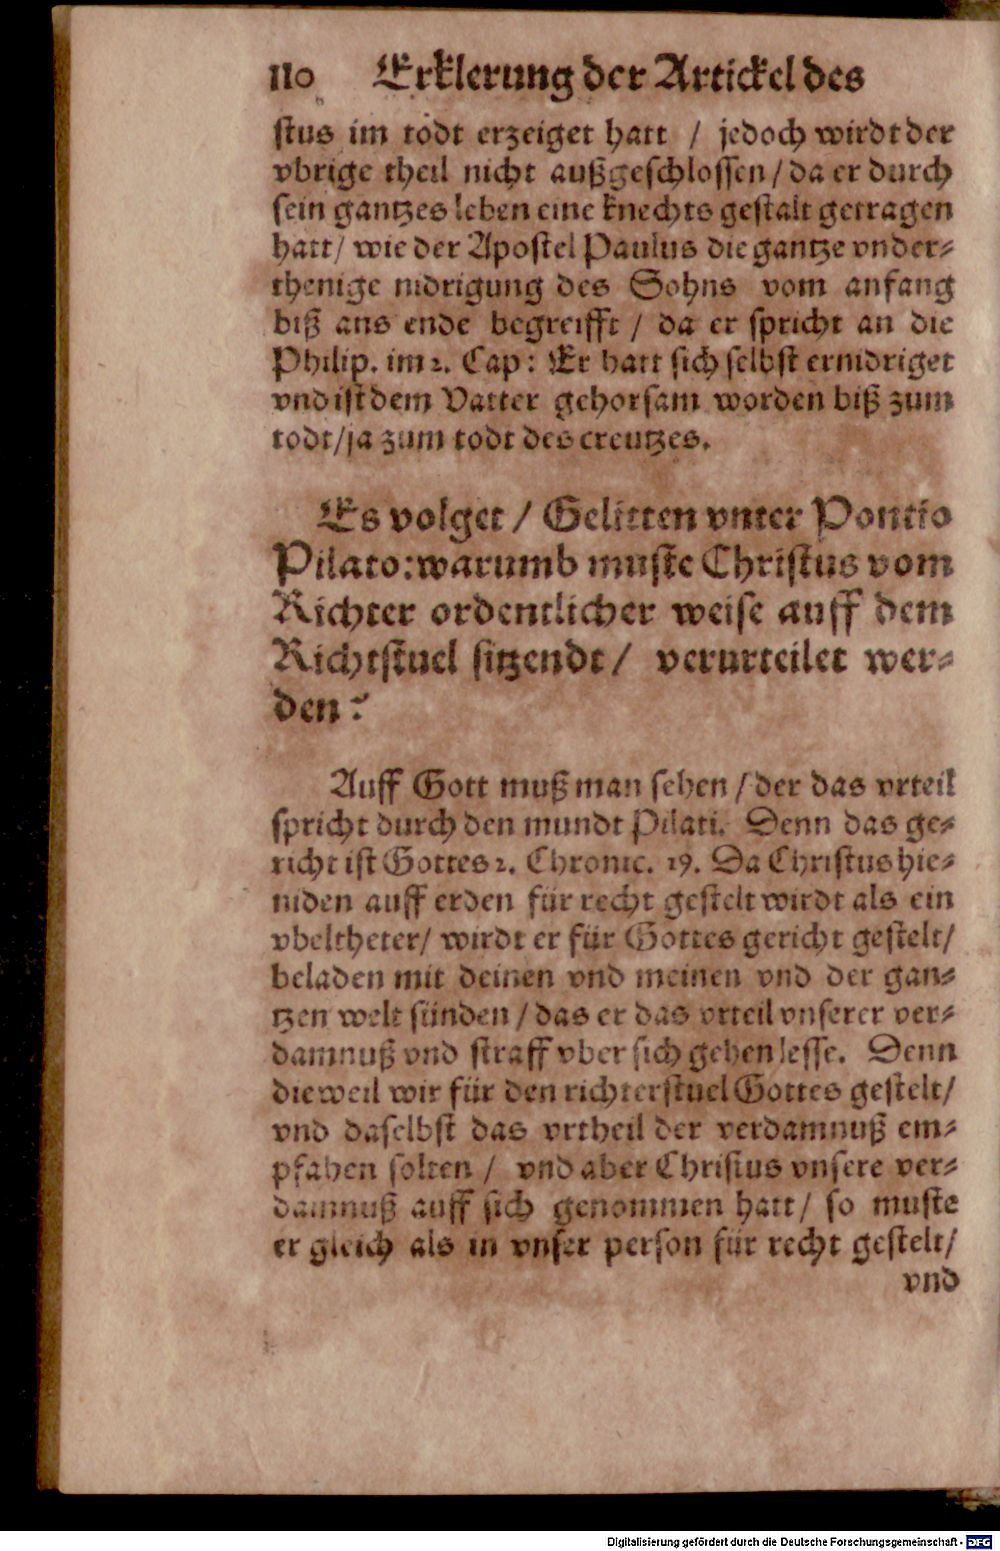 110 Erklerung der Artickel des
stus im todt erzeiget hatt / jedoch wirdt der
vbrige theil nicht außgeschlossen / da er durch
sein gantzes leben eine knechts gestalt getragen
hatt / wie der Apostel Paulus die gantze vnder-
thenige nidrigung des Sohns vom anfang
biß ans ende begreifft / da er spricht an die
Philip. im 2. Cap: Er hatt sich selbst ernidriget
vnd ist dem Vatter gehorsam worden biß zum
todt / ja zum todt des creutzes.
Es volget / Gelitten vnter Pontio
Pilato: warumb muste Christus vom
Richter ordentlicher weise auff dem
Richtstuel sitzendt / verurteilet wer-
den?
Auff Gott muß man sehen / der das vrteil
spricht durch den mundt Pilati. Denn das ge-
richt ist Gottes 2. Chronic. 19. Da Christus hie-
niden auff erden für recht gestelt wirdt als ein
vbeltheter / wirdt er für Gottes gericht gestelt /
beladen mit deinen vnd meinen vnd der gan-
tzen welt sünden / das er das vrteil vnserer ver-
damnuß vnd straff vber sich gehen lesse. Denn
dieweil wir für den richterstuel Gottes gestelt /
vnd daselbst das vrtheil der verdamnuß em-
pfahen solten / vnd aber Christus vnsere ver-
damnuß auff sich genommen hatt / so muste
er gleich als in vnser person für recht gestelt /
vnd
Digitalisierung gefördert durch die Deutsche Forschungsgemeinschaft - DFG